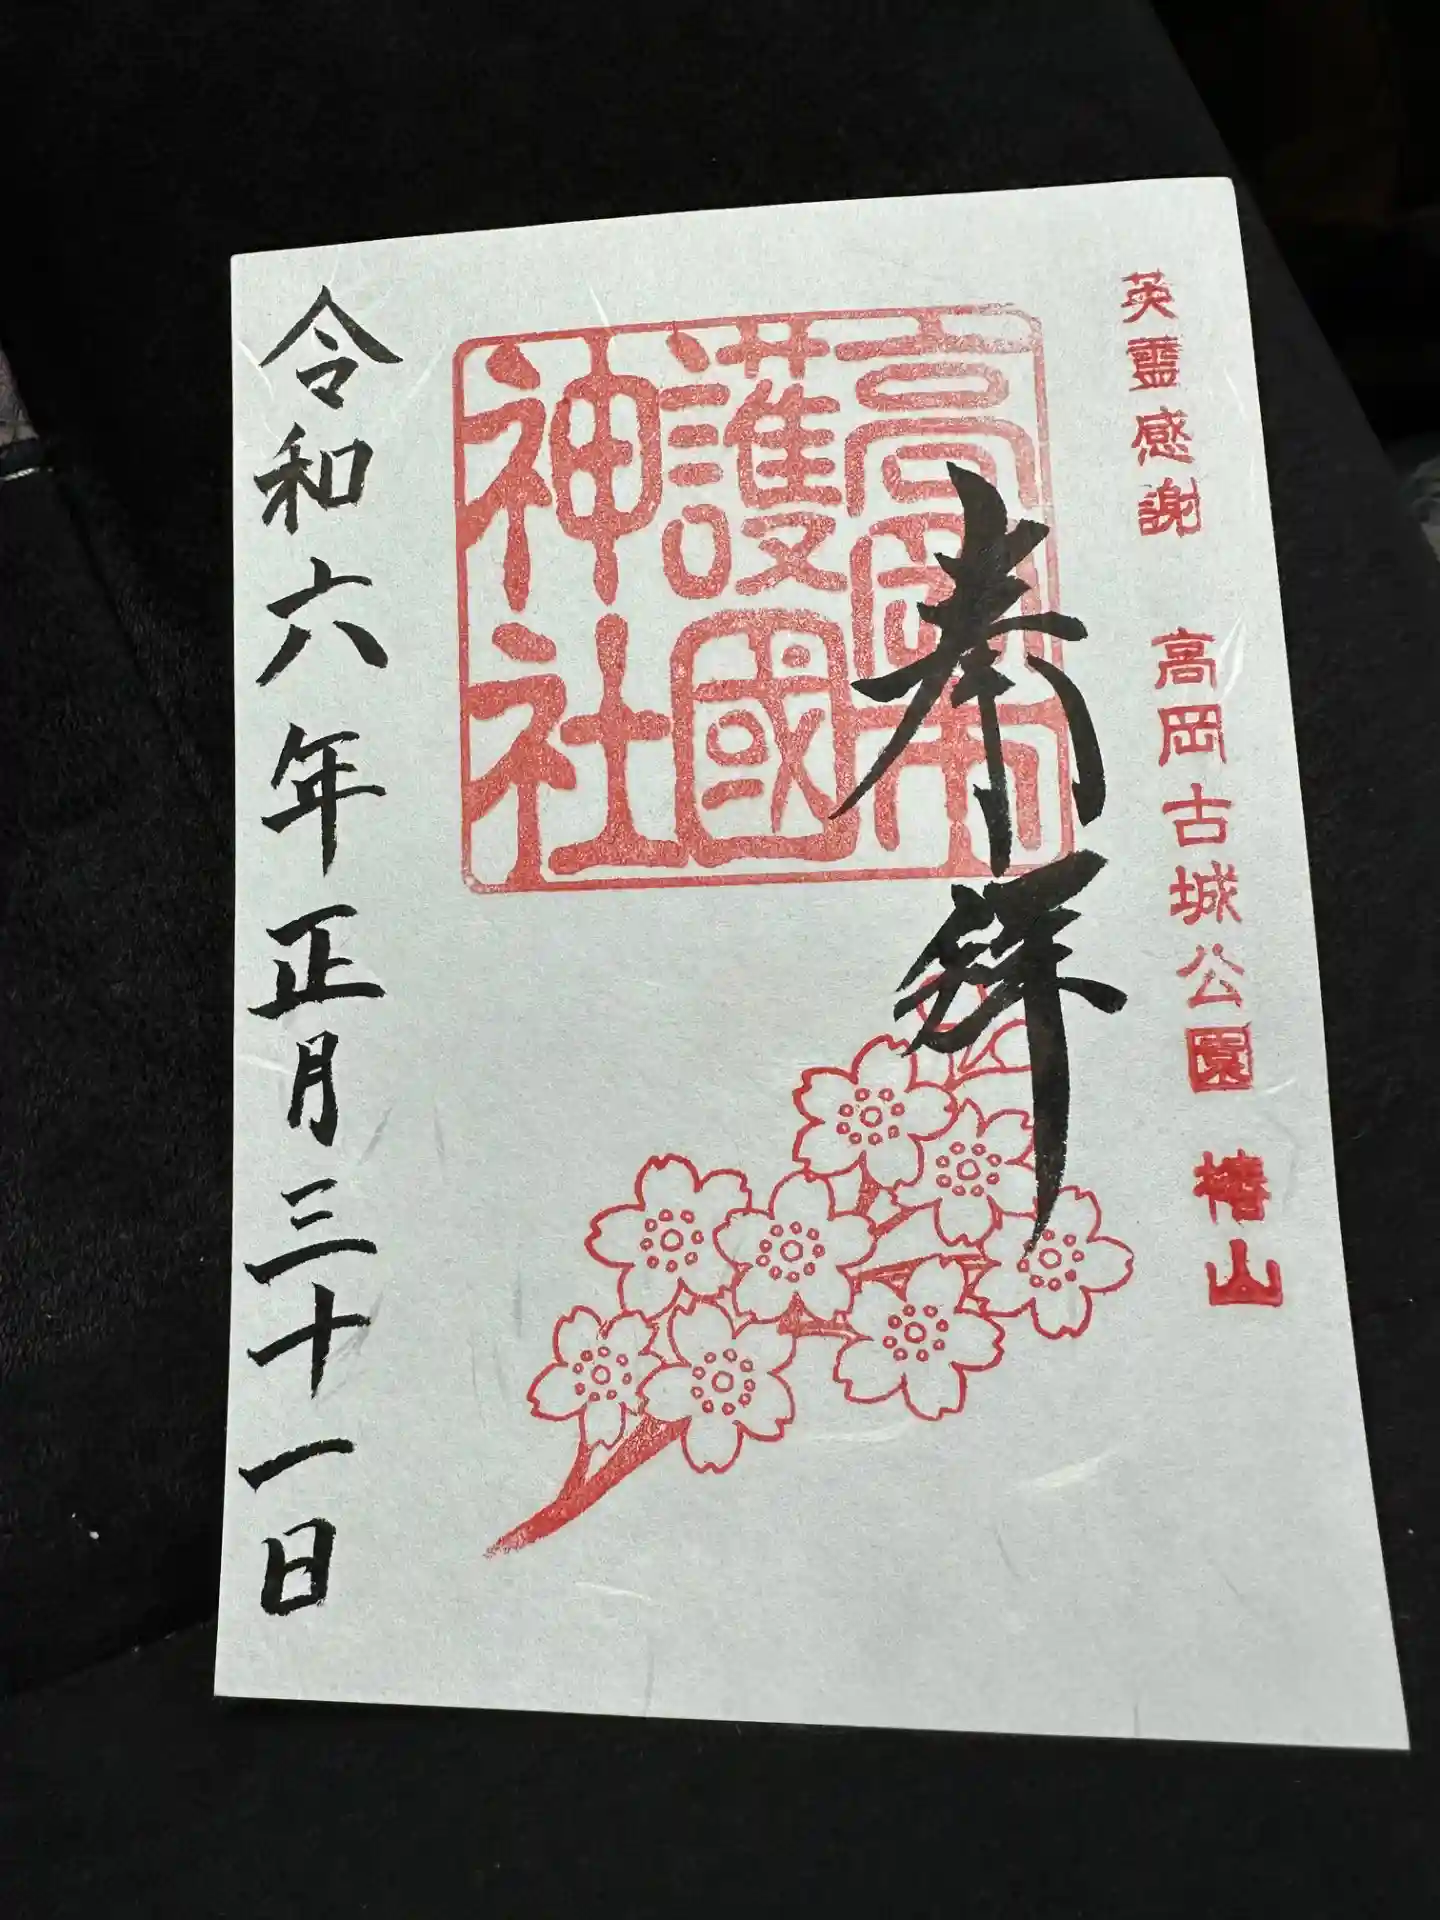 英霊感謝 高岡古城公園 椿山
奉拝
高岡市護國神社
令和六年正月三十一日